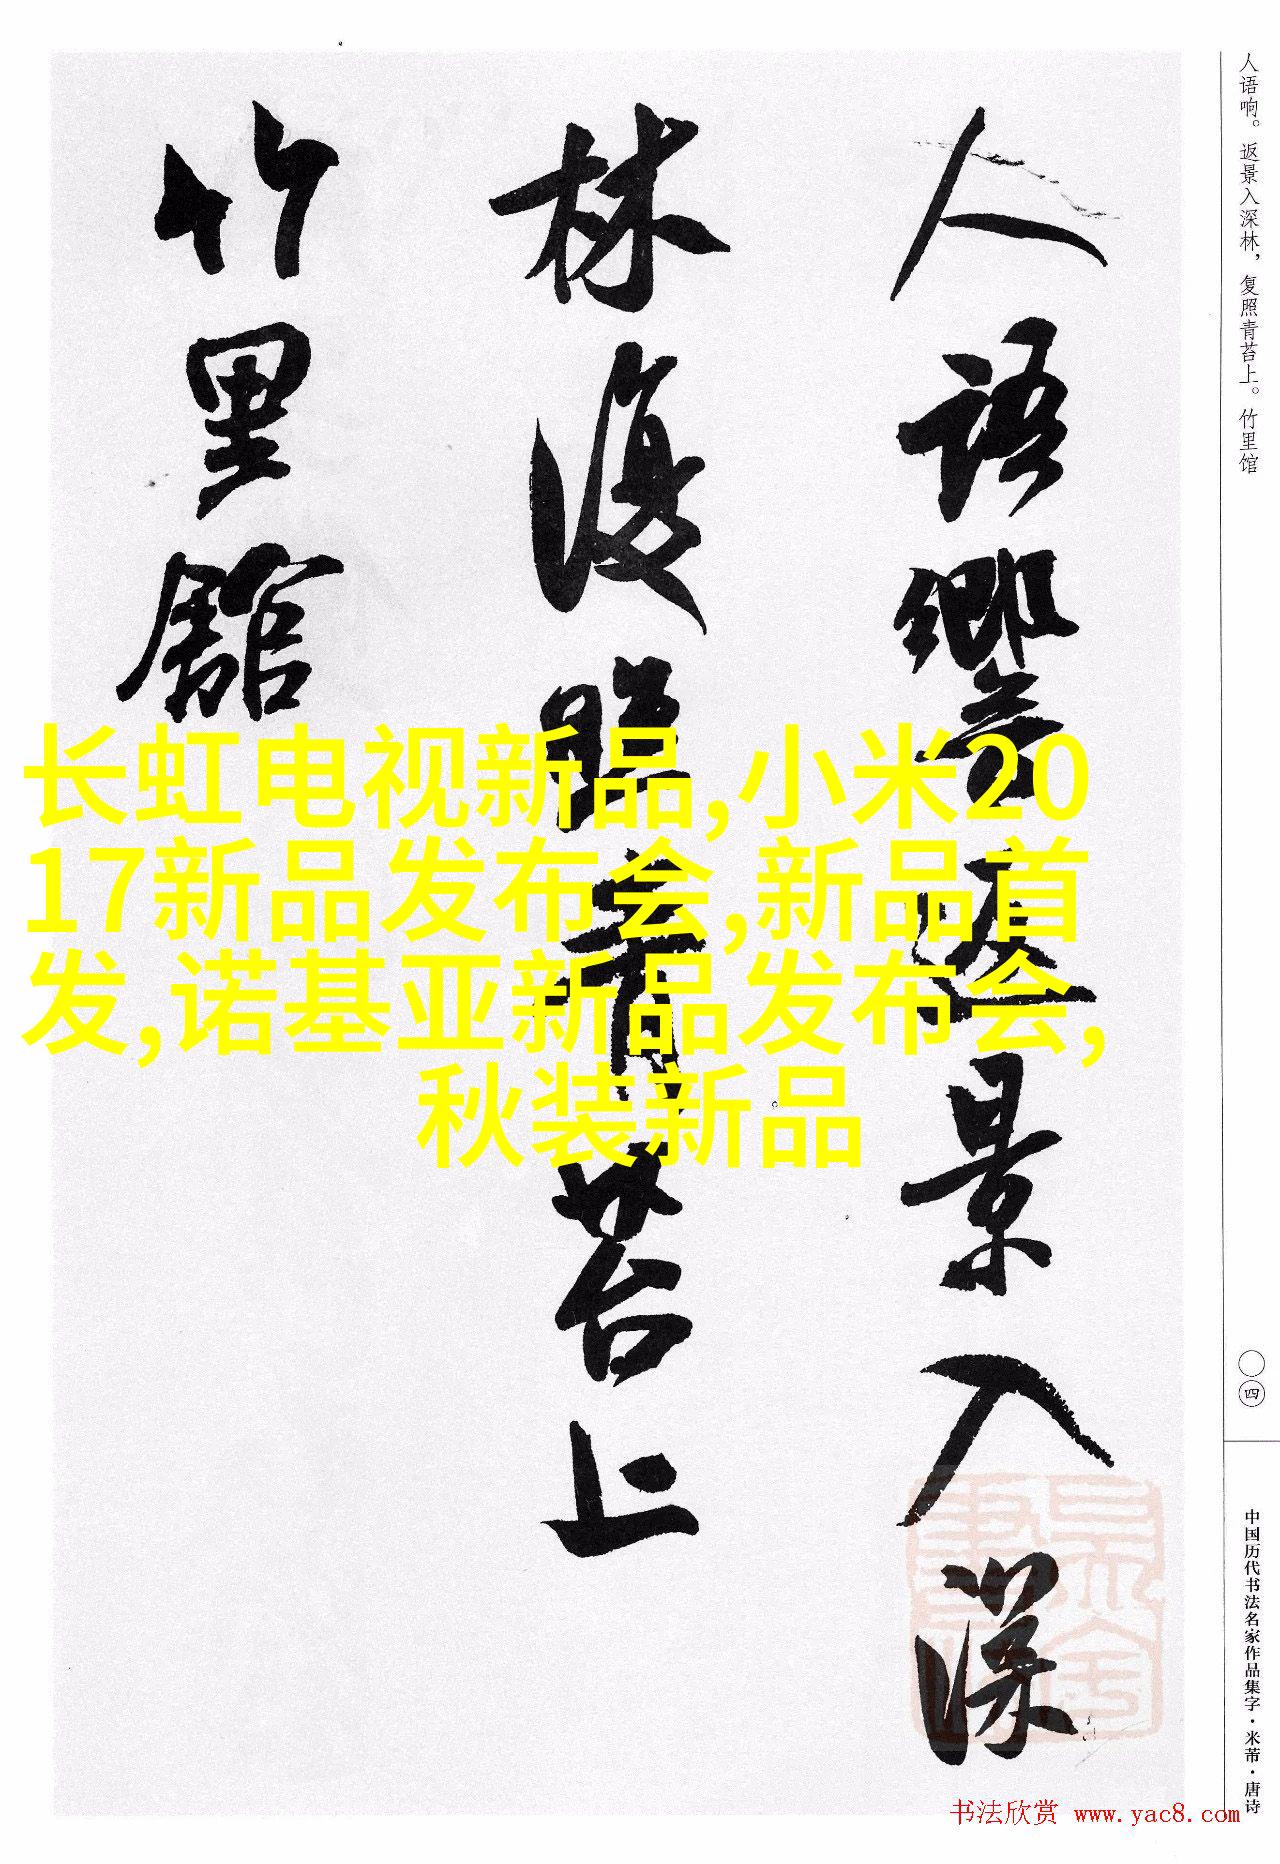 人语响。返景入深林，复照青苔上。竹里馆
人語響返景入深
林復照青苔上
竹里館
长虹电视新品,小米20
17新品发布会,新品首
发,诺基亚新品发布会,
秋装新品
〇四
中国历代书法名家作品集字·米芾·唐诗
书法欣赏 www.yac8.com